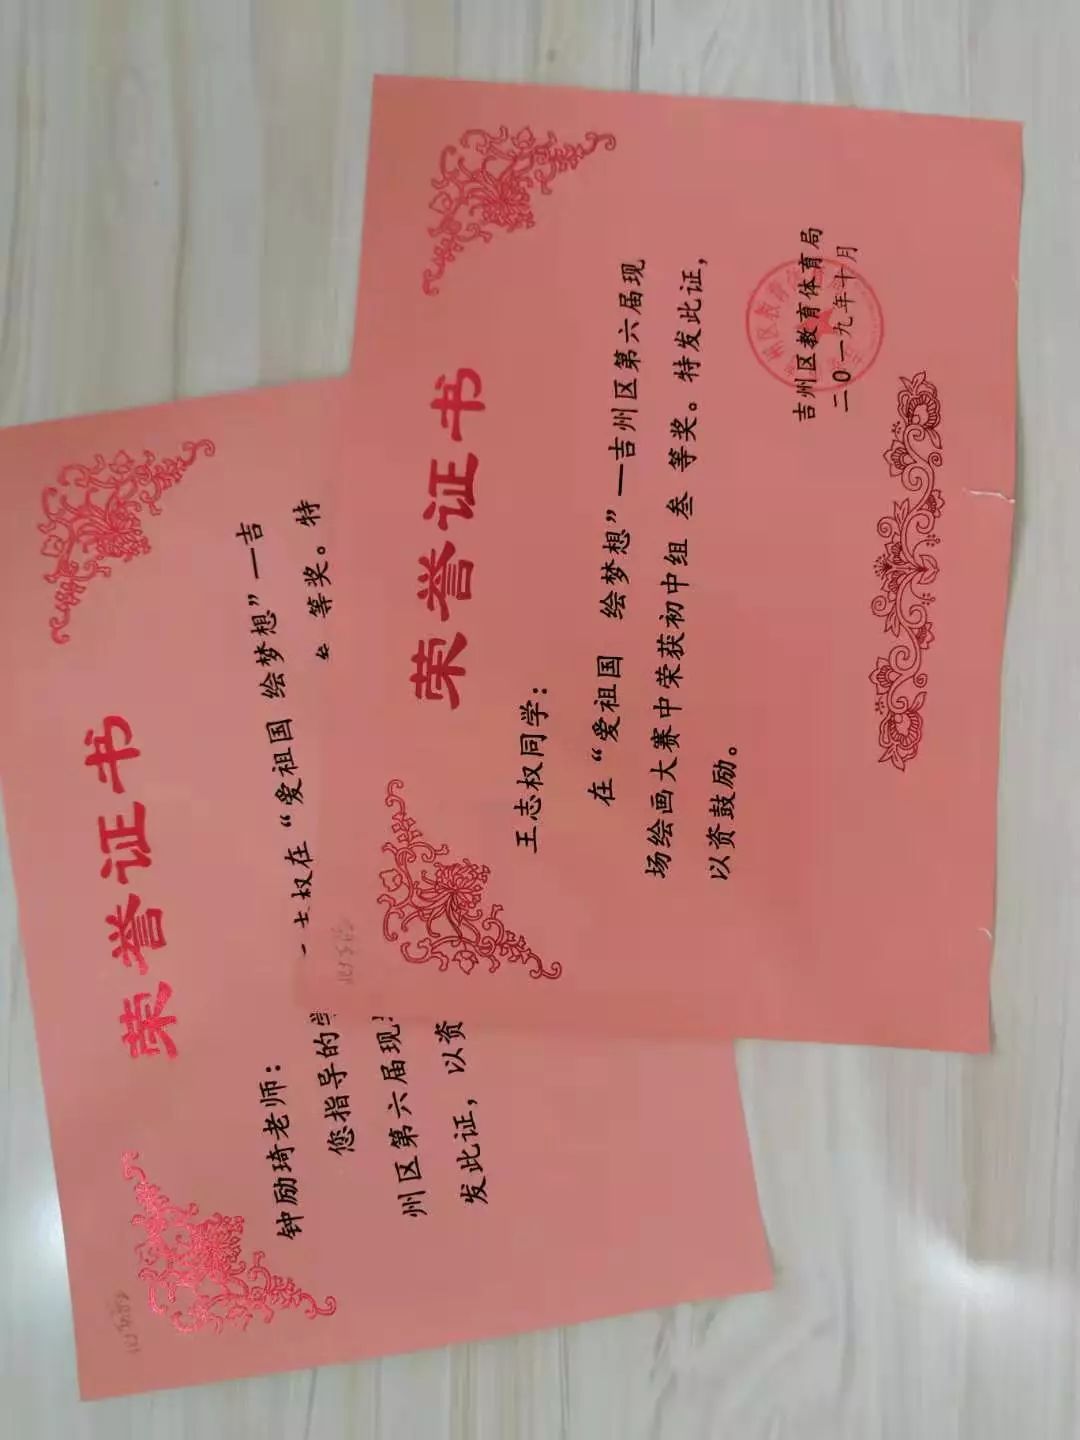 荣誉证书
王志权同学：
在“爱祖国 绘梦想”—吉州区第六届现
场绘画大赛中荣获初中组 叁 等奖。特发此证，
以资鼓励。
吉州区教育体育局
二0一九年十月
荣誉证书
钟励琦老师：
您指导的
权在“爱祖国 绘梦想”—吉
州区第六届现
等奖。特
发此证，以资